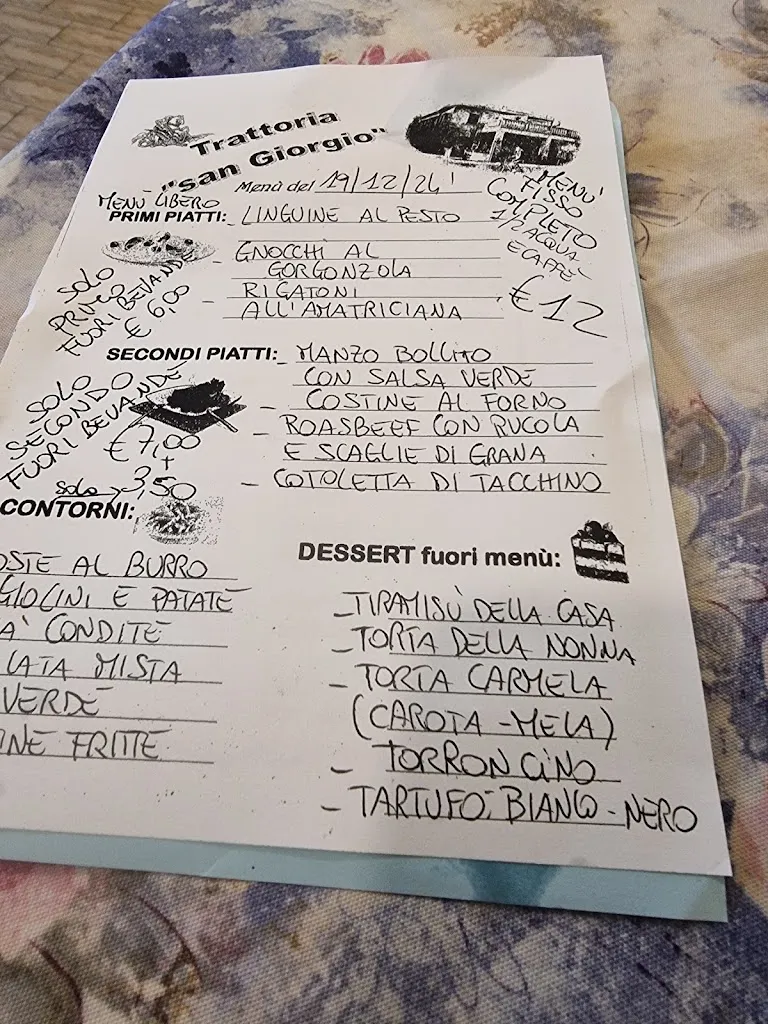 Trattoria
"san Giorgio"
Menù del 19/12/24'
MENÙ
FISSO
COMPLETO
1/2 ACQUA
E CAFFÈ
€ 12
MENÙ LIBERO
PRIMI PIATTI: LINGUINE AL PESTO
- GNOCCHI AL
GORGONZOLA
- RIGATONI
ALL'AMATRICIANA
SOLO
PRIMO
FUORI BEVANDE
€ 6,00
SECONDI PIATTI: - MANZO BOLLITO
CON SALSA VERDE
- COSTINE AL FORNO
- ROASBEEF CON RUCOLA
E SCAGLIE DI GRANA
- COTOLETTA DI TACCHINO
SOLO
SECONDO
FUORI BEVANDE
€ 7,00
+
solo 3,50
CONTORNI:
OSTE AL BURRO
GIOLINI E PATATE
A' CONDITE
LATA MISTA
VERDE
INE FRITTE
DESSERT fuori menù:
- TIRAMISÙ DELLA CASA
- TORTA DELLA NONNA
- TORTA CARMELA
(CAROTA - MELA)
- TORRONCINO
- TARTUFO: BIANCO - NERO